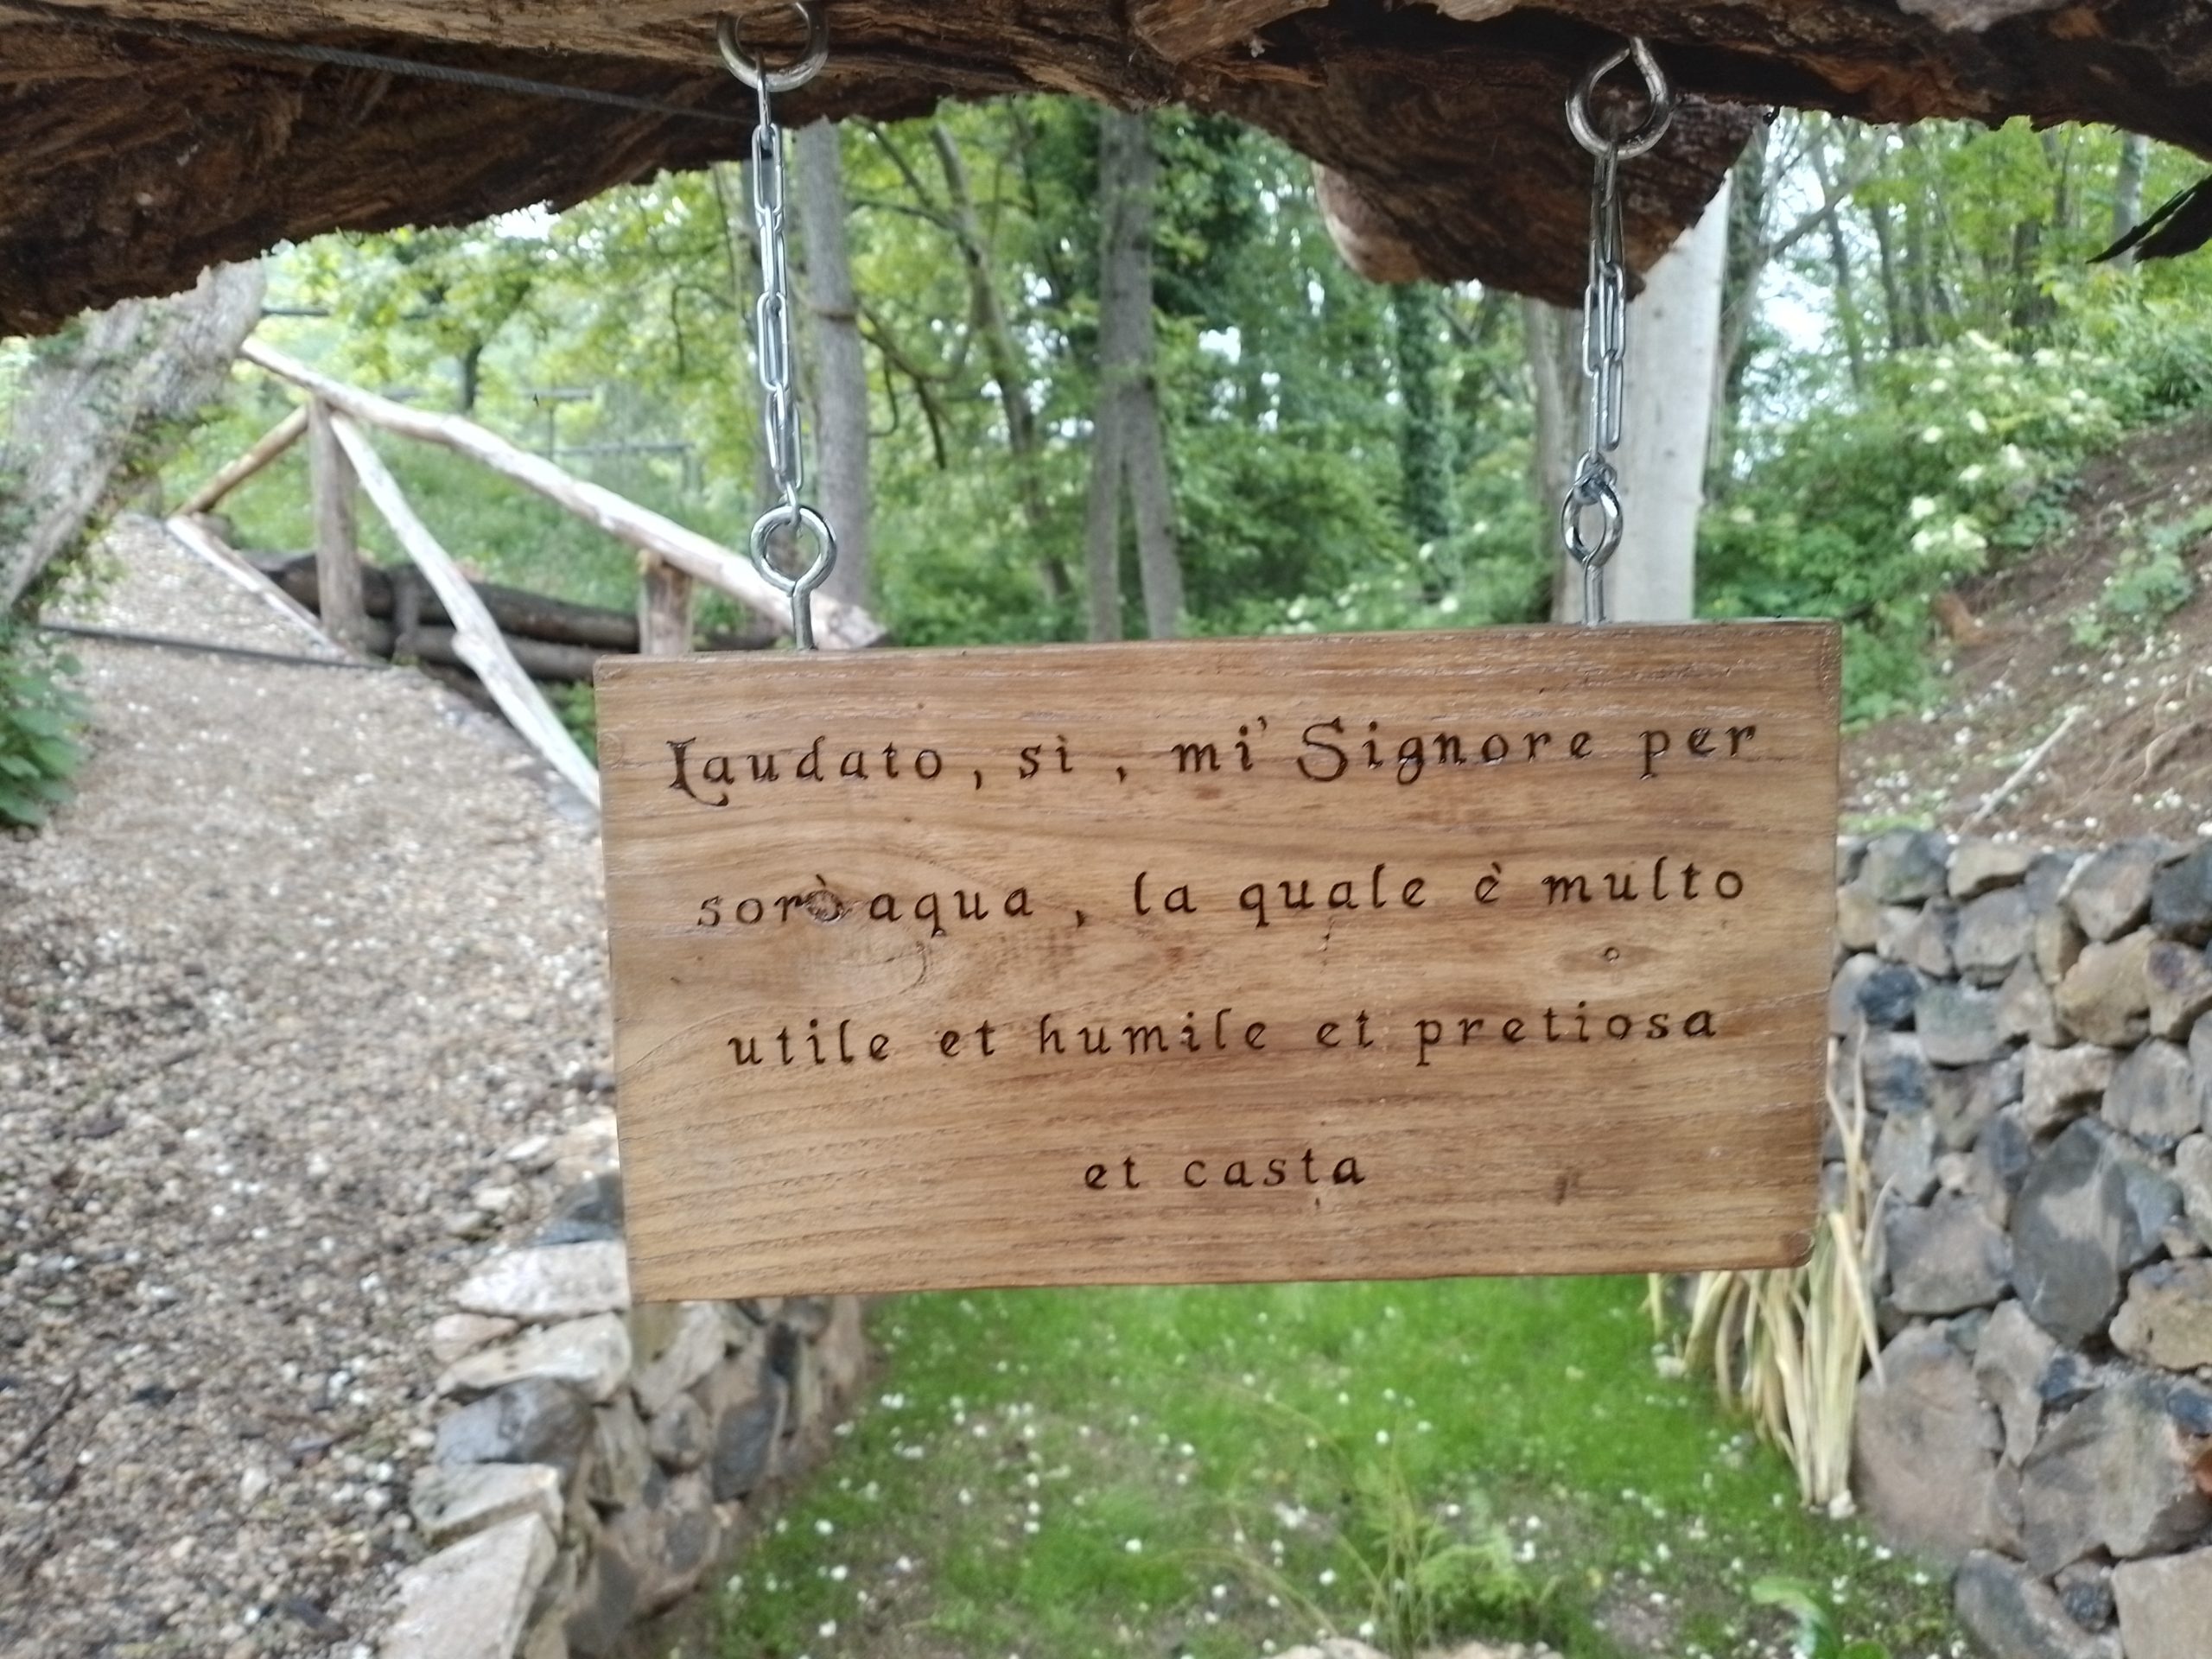 Laudato, sì, mi' Signore per
sorò aqua, la quale è multo
utile et humile et pretiosa
et casta